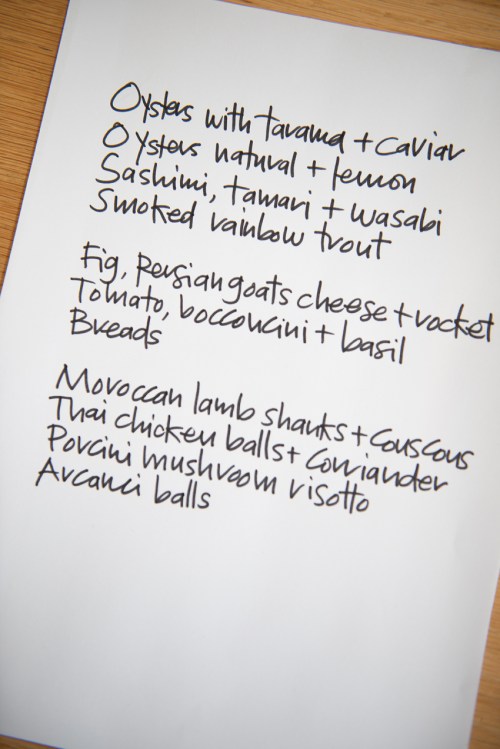 Oysters with tarama + caviar
Oysters natural + lemon
Sashimi, tamari + wasabi
Smoked rainbow trout
Fig, Persian goats cheese + rocket
Tomato, bocconcini + basil
Breads
Moroccan lamb shanks + couscous
Thai chicken balls + corriander
Porcini mushroom risotto
Arcanci balls